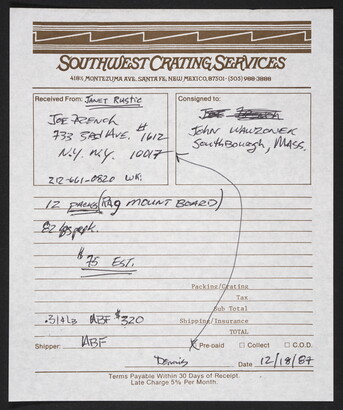 SOUTHWEST CRATING SERVICES
418½ MONTEZUMA AVE. SANTA FE, NEW MEXICO, 87501 - (505) 988-3888
Received From: JANET RUSTIC
JOE FRENCH
733 3RD AVE. # 1612
N.Y. N.Y. 10017
212-661-0820 WK.
Consigned to:
JOHN WAWZONEK
SOUTHBOROUGH, MASS.
12 PACKS (RAG MOUNT BOARD)
$75 EST.
Packing/Crating
Tax
Sub Total
ABF $320
Shipping/Insurance
TOTAL
Shipper: ABF
X Pre-paid Collect C.O.D.
Dennis
Date 12/18/87
Terms Payable Within 30 Days of Receipt.
Late Charge 5% Per Month.